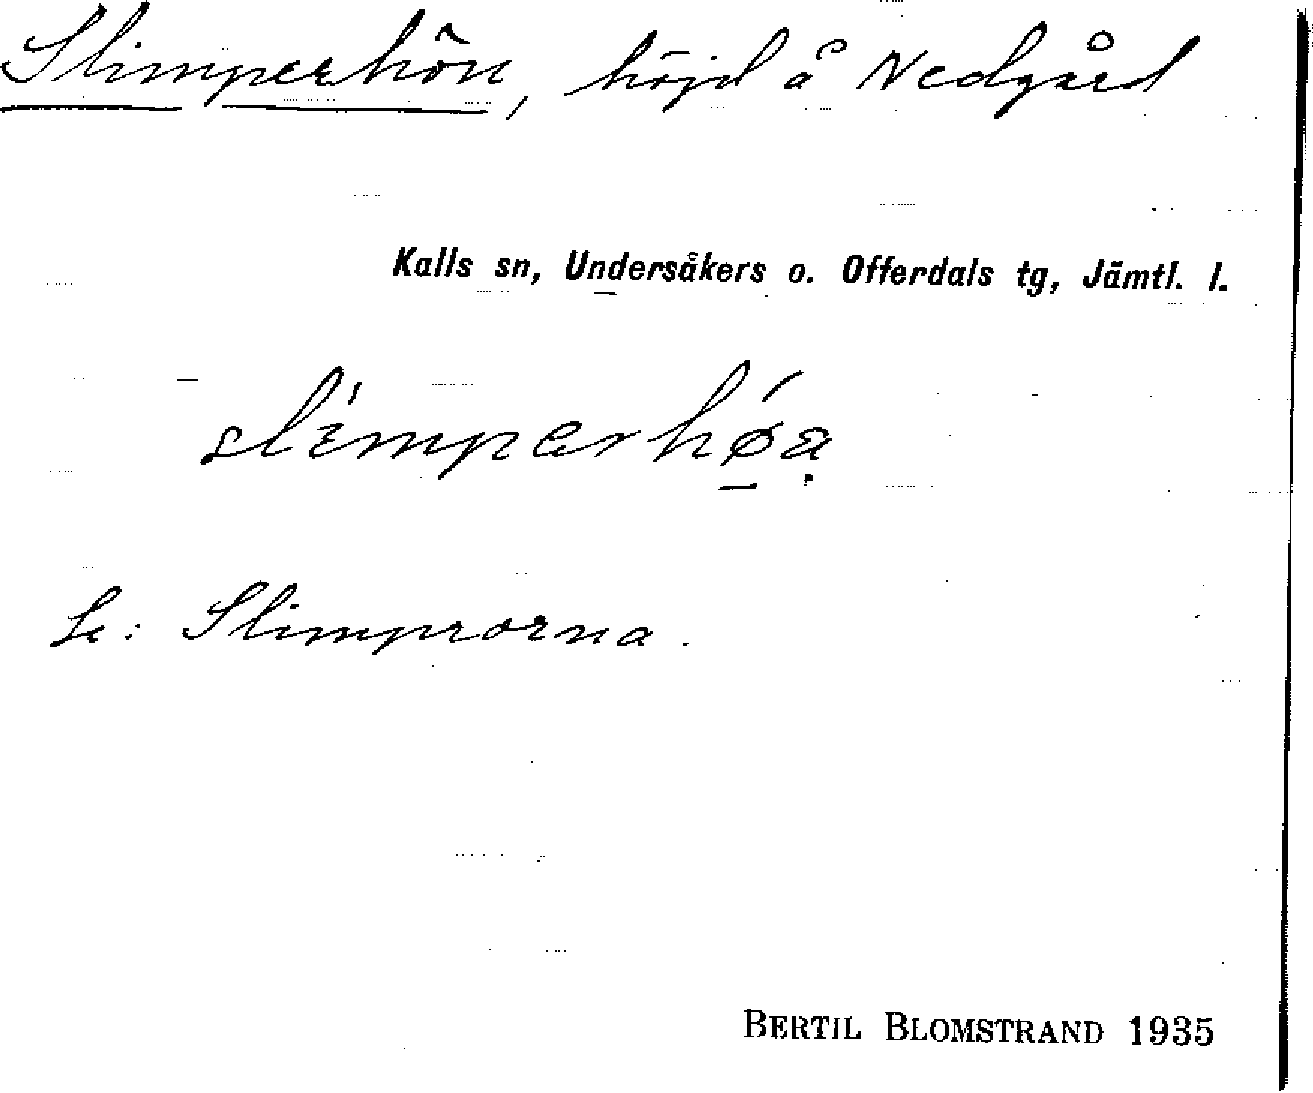 Slimperhön, höjd å Nedgård
Kalls sn, Undersåkers o. Offerdals tg, Jämtl. l.
slímperhǿa
Se: Slimprorna.
BERTIL BLOMSTRAND 1935